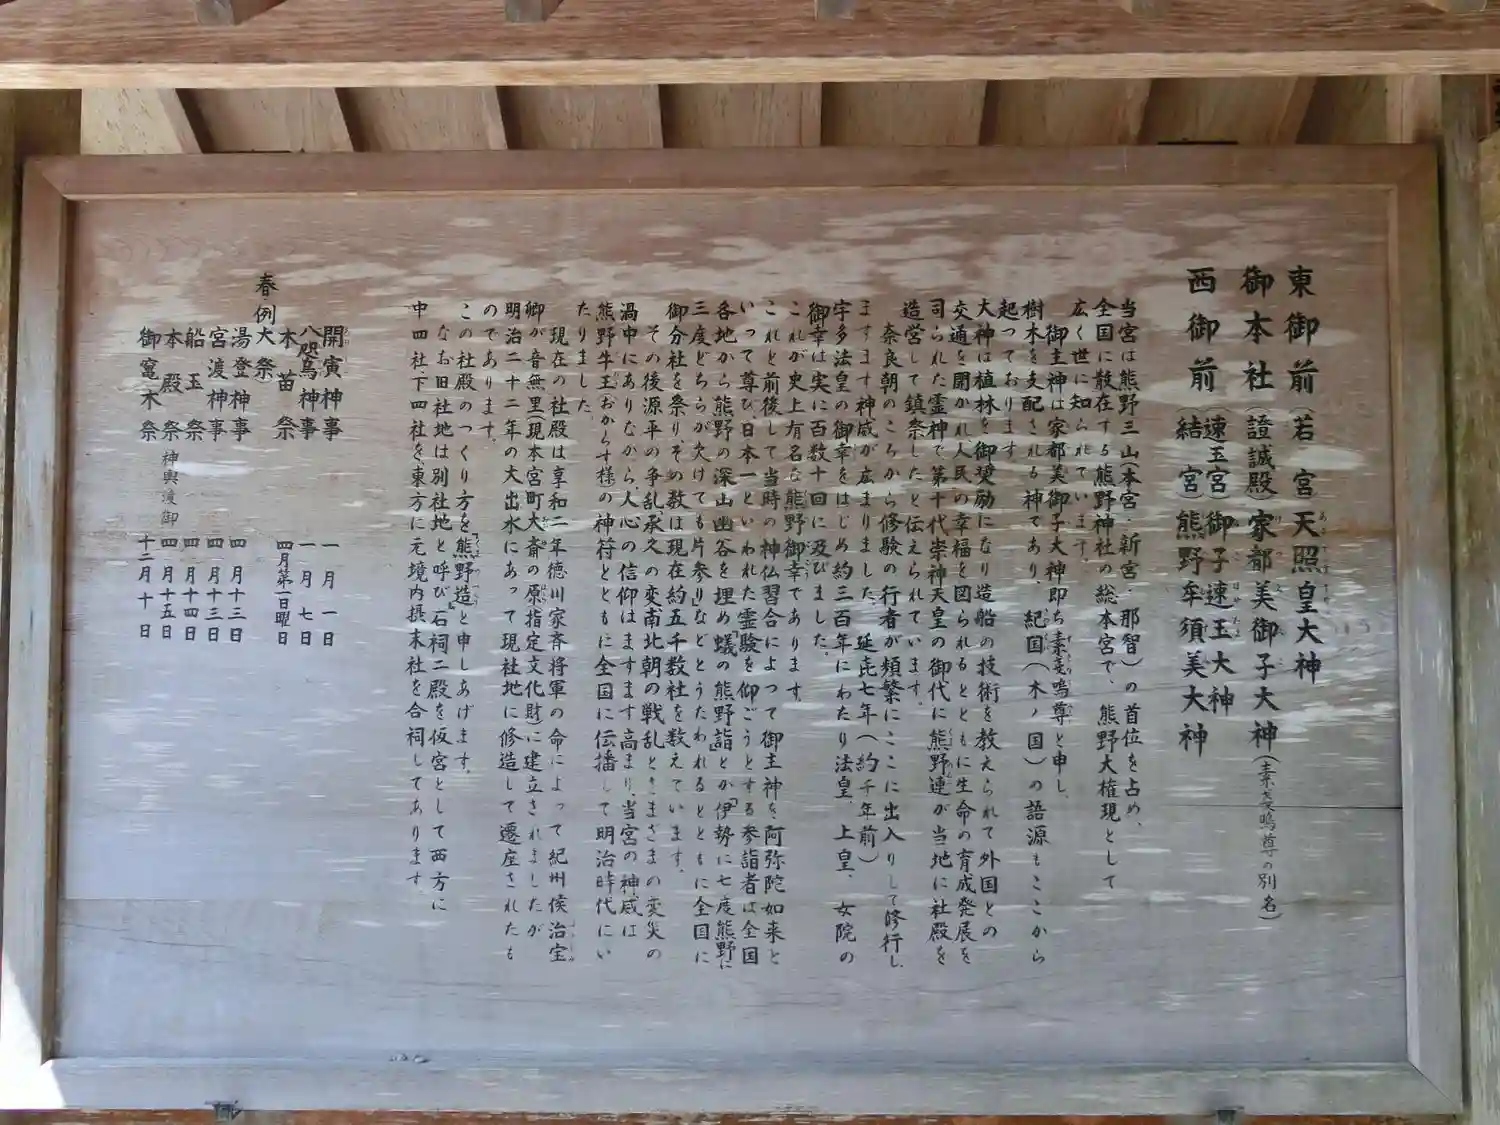 東御前(若宮天照皇大神
御本社(證誠殿家都美御子大神(素戔嗚尊の別名)
西御前(速玉宮御子速玉大神
(結宮熊野牟須美大神
当宮は熊野三山(本宮・新宮・那智)の首位を占め、
全国に散在する熊野神社の総本宮で、熊野大権現として
広く世に知られています。
御主神は家都美御子大神即ち素戔嗚尊と申し、
樹木を支配される神であり、紀国(木ノ国)の語源もここから
起つております。
大神は植林を御奨励になり造船の技術を教えられて外国との
交通を開かれ人民の幸福を図られるとともに生命の育成発展を
司られた霊神で第十代崇神天皇の御代に熊野連が当地に社殿を
造営して鎮祭したと伝えられています。
奈良朝のころから修験の行者が頻繁にここに出入りして修行し
ますます神威が広まりました。延㐂七年(約千年前)
宇多法皇の御幸をはじめ約三百年にわたり法皇、上皇、女院の
御幸は実に百数十回に及びました。
これが史上有名な熊野御幸であります。
これと前後して当時の神仏習合によつて御主神を阿弥陀如来と
いつて尊び日本一といわれた霊験を仰ごうとする参詣者は全国
各地から熊野の深山幽谷を埋め「蟻の熊野詣」とか「伊勢に七度熊野に
三度どちらが欠けても片参り」などとうたわれるとともに全国に
御分社を祭り、その数は現在約五千数社を数えています。
その後源平の争乱、承久の変南北朝の戦乱ときまざまの変災の
渦中にありながら、人心の信仰はますます高まり、当宮の神威は
熊野牛王(おからす様)の神符とともに全国に伝播して明治時代にい
たりました。
現在の社殿は享和二年徳川家斉将軍の命によって紀州侯治宝
卿が音無里現本宮町大斎の原指定文化財に建立されましたが
明治二十二年の大出水にあつて現社地に修造して遷座されたも
のであります。
この社殿のつくり方を「熊野造」と申しあげます。
なお旧社地は別社地と呼び石祠二殿を仮宮として西方に
中四社下四社を、東方に元境内摂末社を合祠してあります。
開寅神事 一月一日
八咫烏神事 一月七日
本苗祭 四月第一日曜日
春例大祭
湯登神事 四月十三日
宮渡神事 四月十三日
船玉祭 四月十四日
本殿祭 神輿渡御 四月十五日
御竃木祭 十二月十日